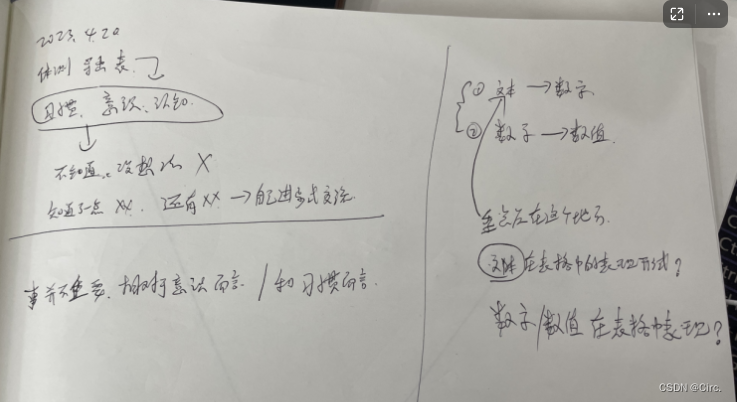 2023.4.20
体测 导出表
习惯、意识、认知
不知道，没想法 X
知道了一点 XX，还有XX → 自己进步式交流
事并不重要，相对于意识而言 / 和习惯而言
① 文本 → 数字
② 数字 → 数值
重点在这个地方
文本在表格中的表现形式？
数字/数值 在表格中表现？
CSDN @Circ.